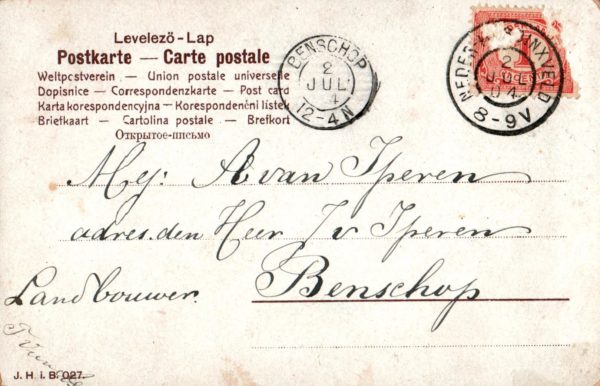 Levelező-Lap
Postkarte — Carte postale
Weltpostverein — Union postale universelle
Dopisnice — Correspondenzkarte — Post card
Karta korespondencyjna — Korespondenční lístek
Briefkaart — Cartolina postale — Brefkort
Открытое-письмо
BENSCHOP
2
JUL
4
12-4N
2
JUL
04
8-9V
Mej: A van Iperen
adres. den Heer J v Iperen
Benschop
Landbouwer.
J. H. i. B. 027.